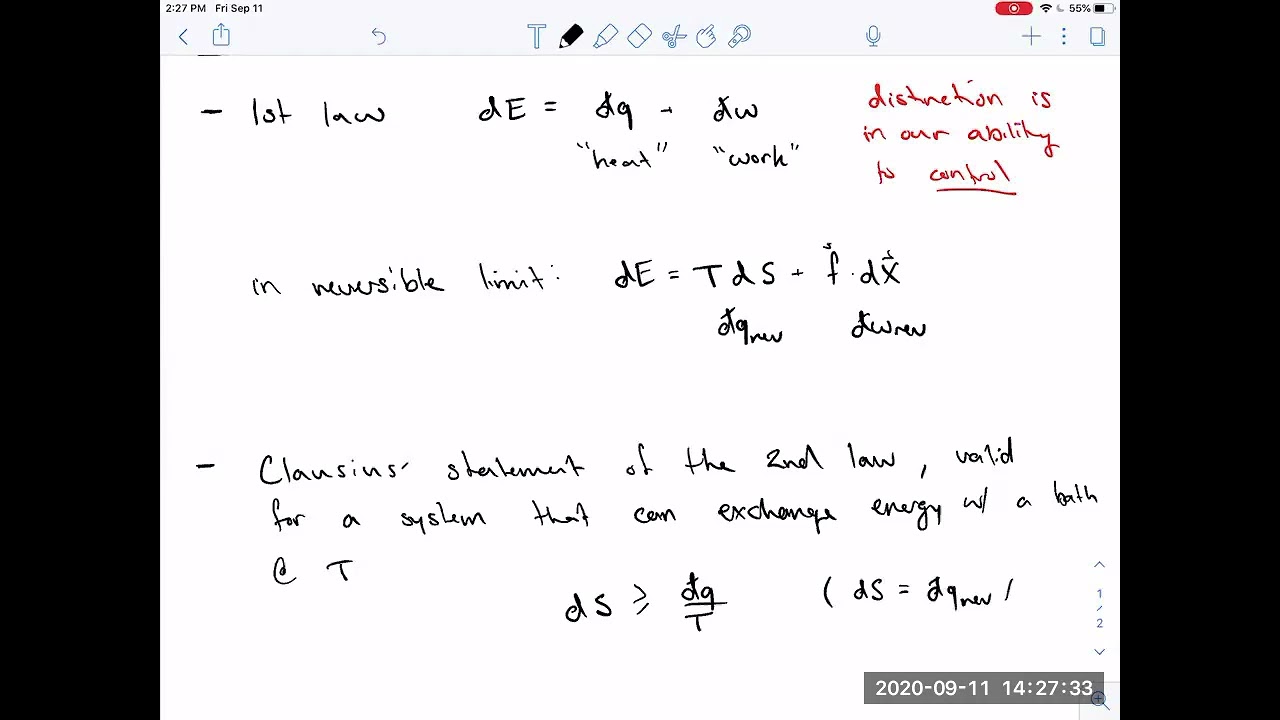 2:27 PM Fri Sep 11
55%
- 1st law dE = đq + đw
"heat" "work"
distinction is
in our ability
to control
in reversible limit: dE = T dS + f⃗ · dX⃗
đqrev đwrev
- Clausius' statement of the 2nd law, valid
for a system that can exchange energy w/ a bath
@ T
dS ≥ đq/T ( dS = đqrev /
1
/
2
2020-09-11 14:27:33